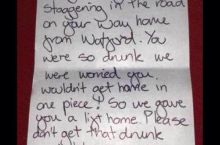 staggering in the road
on your way home
from Watford. You
were so drunk we
were worried you
wouldn't get home in
one piece! So we gave
you a lift home. Please
don't get that drunk